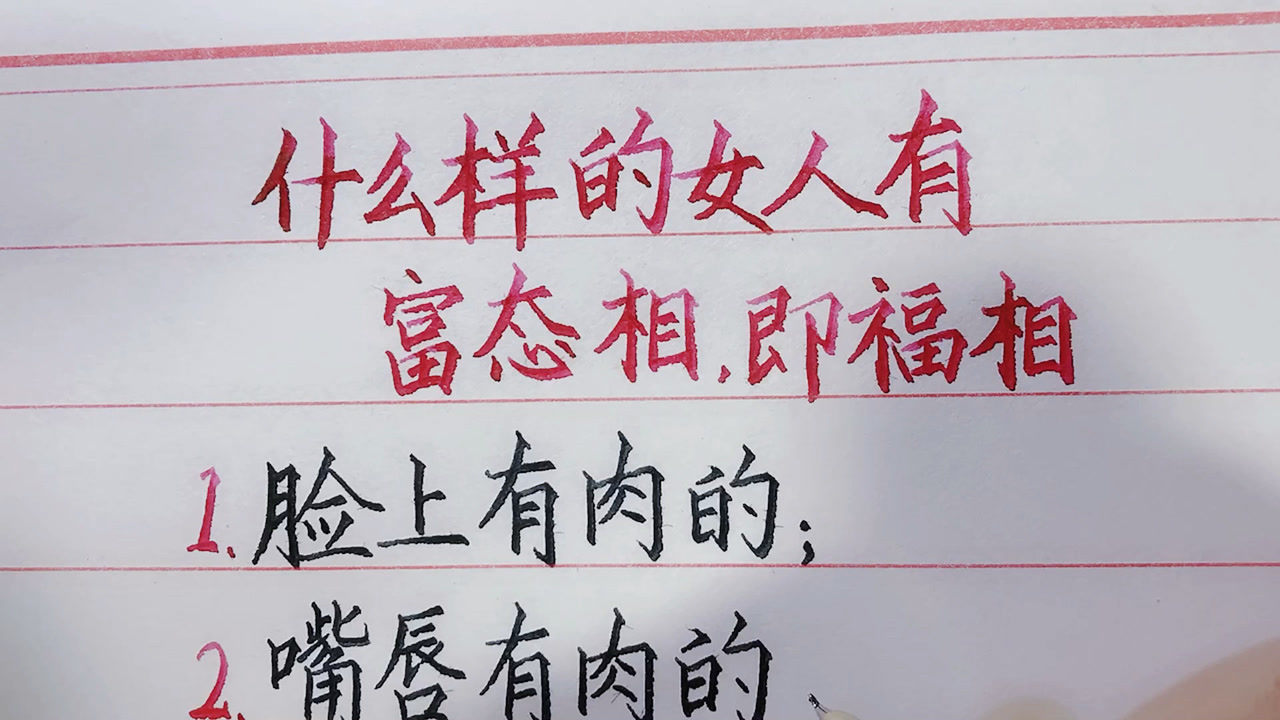 什么样的女人有
富态相.即福相
1.脸上有肉的;
2.嘴唇有肉的